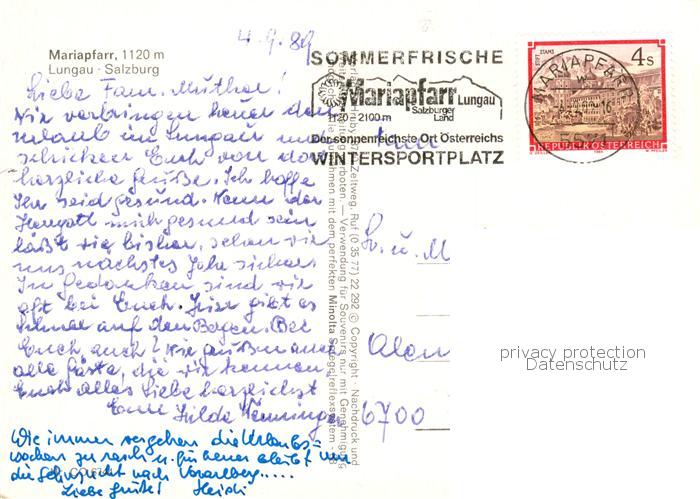 4.9.89
Mariapfarr, 1120 m
Lungau · Salzburg
SOMMERFRISCHE
Mariapfarr Lungau
Salzburger
Land
1120 - 2100 m
Der sonnenreichste Ort Österreichs
WINTERSPORTPLATZ
STIFT STAMS
4 s
MARIAPFARR
REPUBLIK ÖSTERREICH
Liebe Fam.
Wir verbringen heuer den
Urlaub im Lungau und
schicken Euch von dort
herzliche Grüße. Ich hoffe
Ihr seid gesund. Wenn der
Herrgott mich gesund sein
läßt wie bisher, sehen wir
uns nächstes Jahr sicher.
In Gedanken sind wir
oft bei Euch. Hier gibt es
Schnee auf den Bergen. Bei
Euch auch? Wir grüßen auch
alle Gäste, die wir kennen.
Euch alles Liebe herzlichst
Eure Hilde
Wie immer vergehen die Urlaubs=
wochen zu rasch u. für heuer bleibt nur
die Sehnsucht nach Vorarlberg.....
Liebe Grüße! Heidi
Zeltweg, Ruf (0 35 77) 22 292 © Copyright · Nachdruck und
verboten. — Verwendung für Souvenirs nur mit Genehmigung
mit dem perfekten Minolta Spiegelreflexsystem
Fr. u. M
6700
privacy protection
Datenschutz